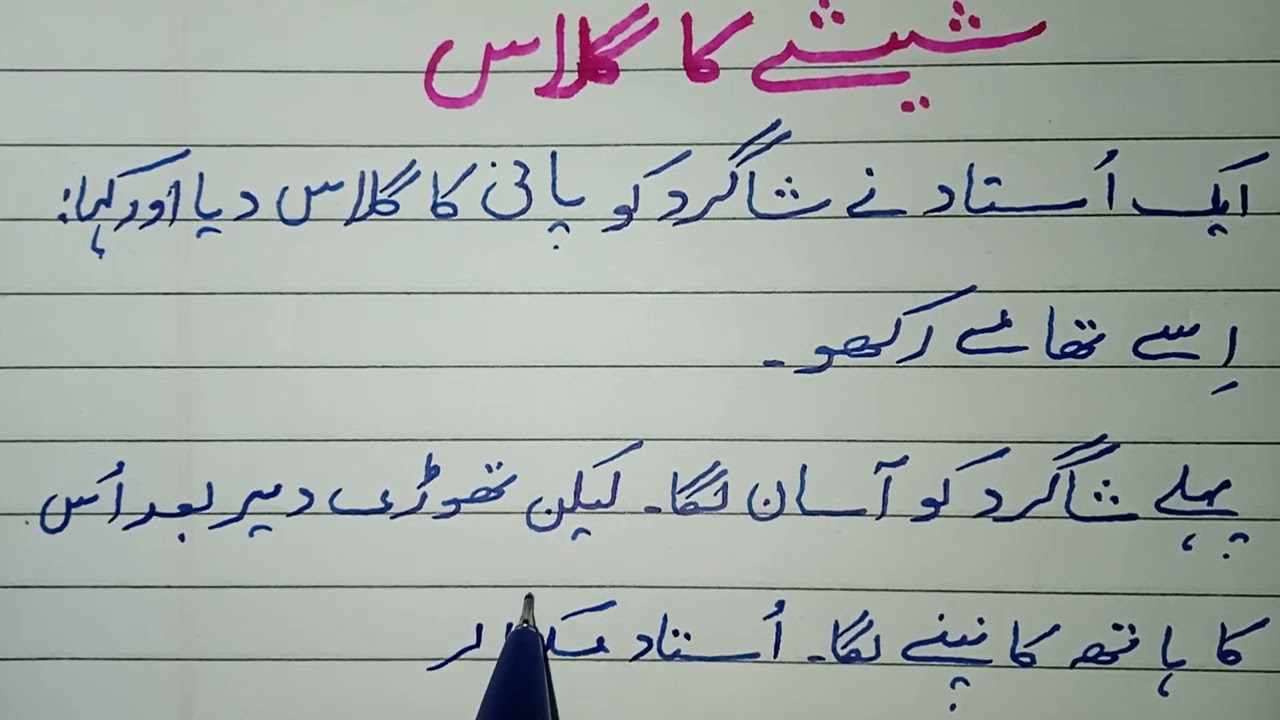 شیشے کا گلاس
ایک اُستاد نے شاگرد کو پانی کا گلاس دیا اور کہا:
اِسے تھامے رکھو۔
پہلے شاگرد کو آسان لگا۔ لیکن تھوڑی دیر بعد اُس
کا ہاتھ کانپنے لگا۔ اُستاد